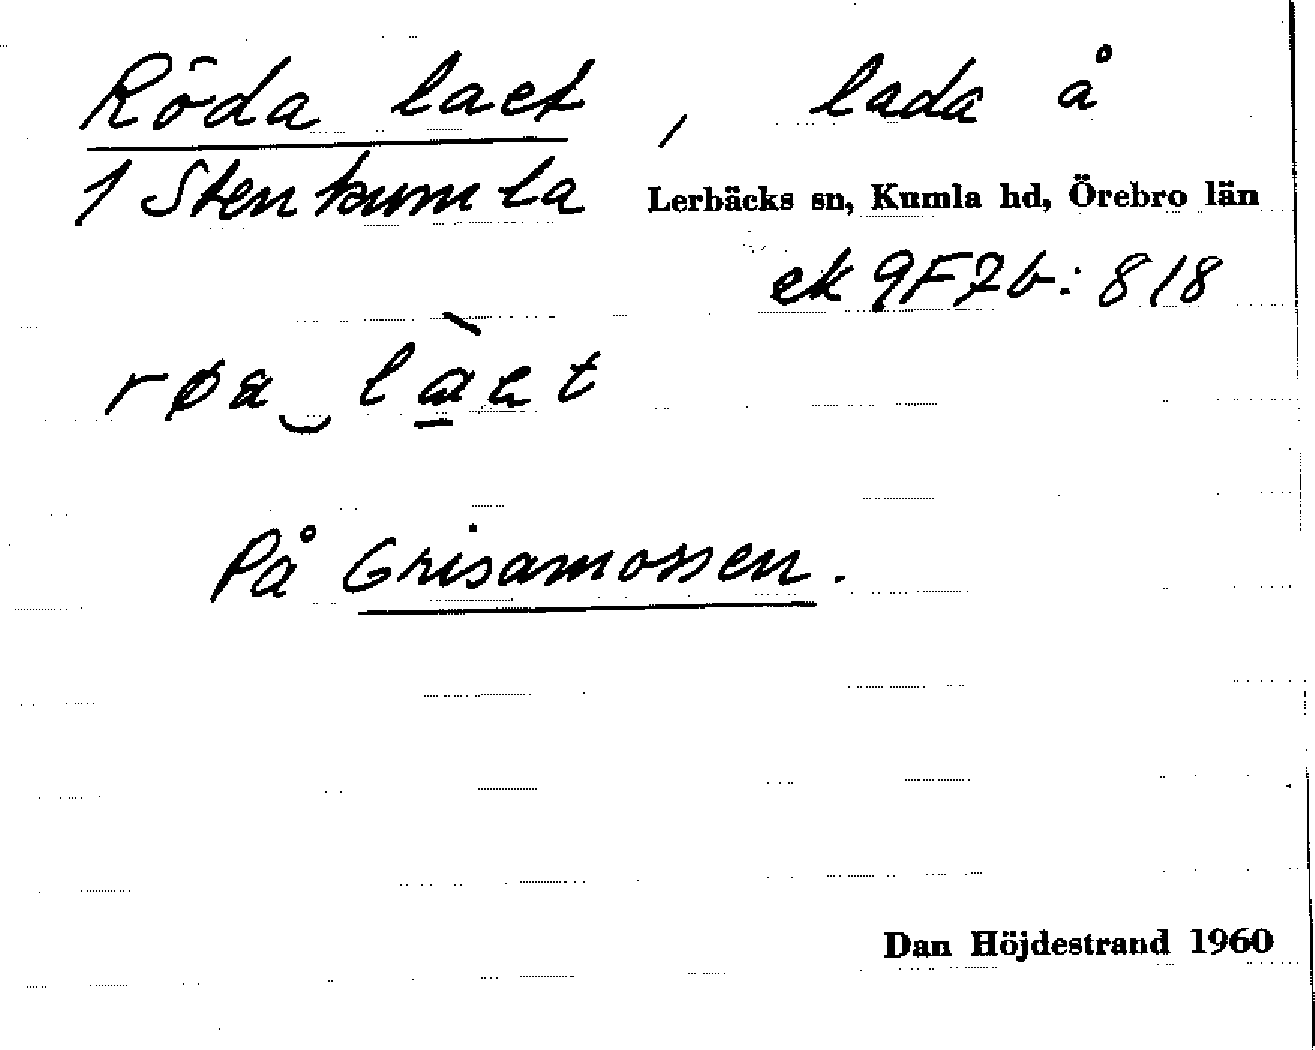 Röda laet, lada å
1 Stenkumla Lerbäcks sn, Kumla hd, Örebro län
ek 9F7b: 818
røa‿làet
På Grisamossen.
Dan Höjdestrand 1960